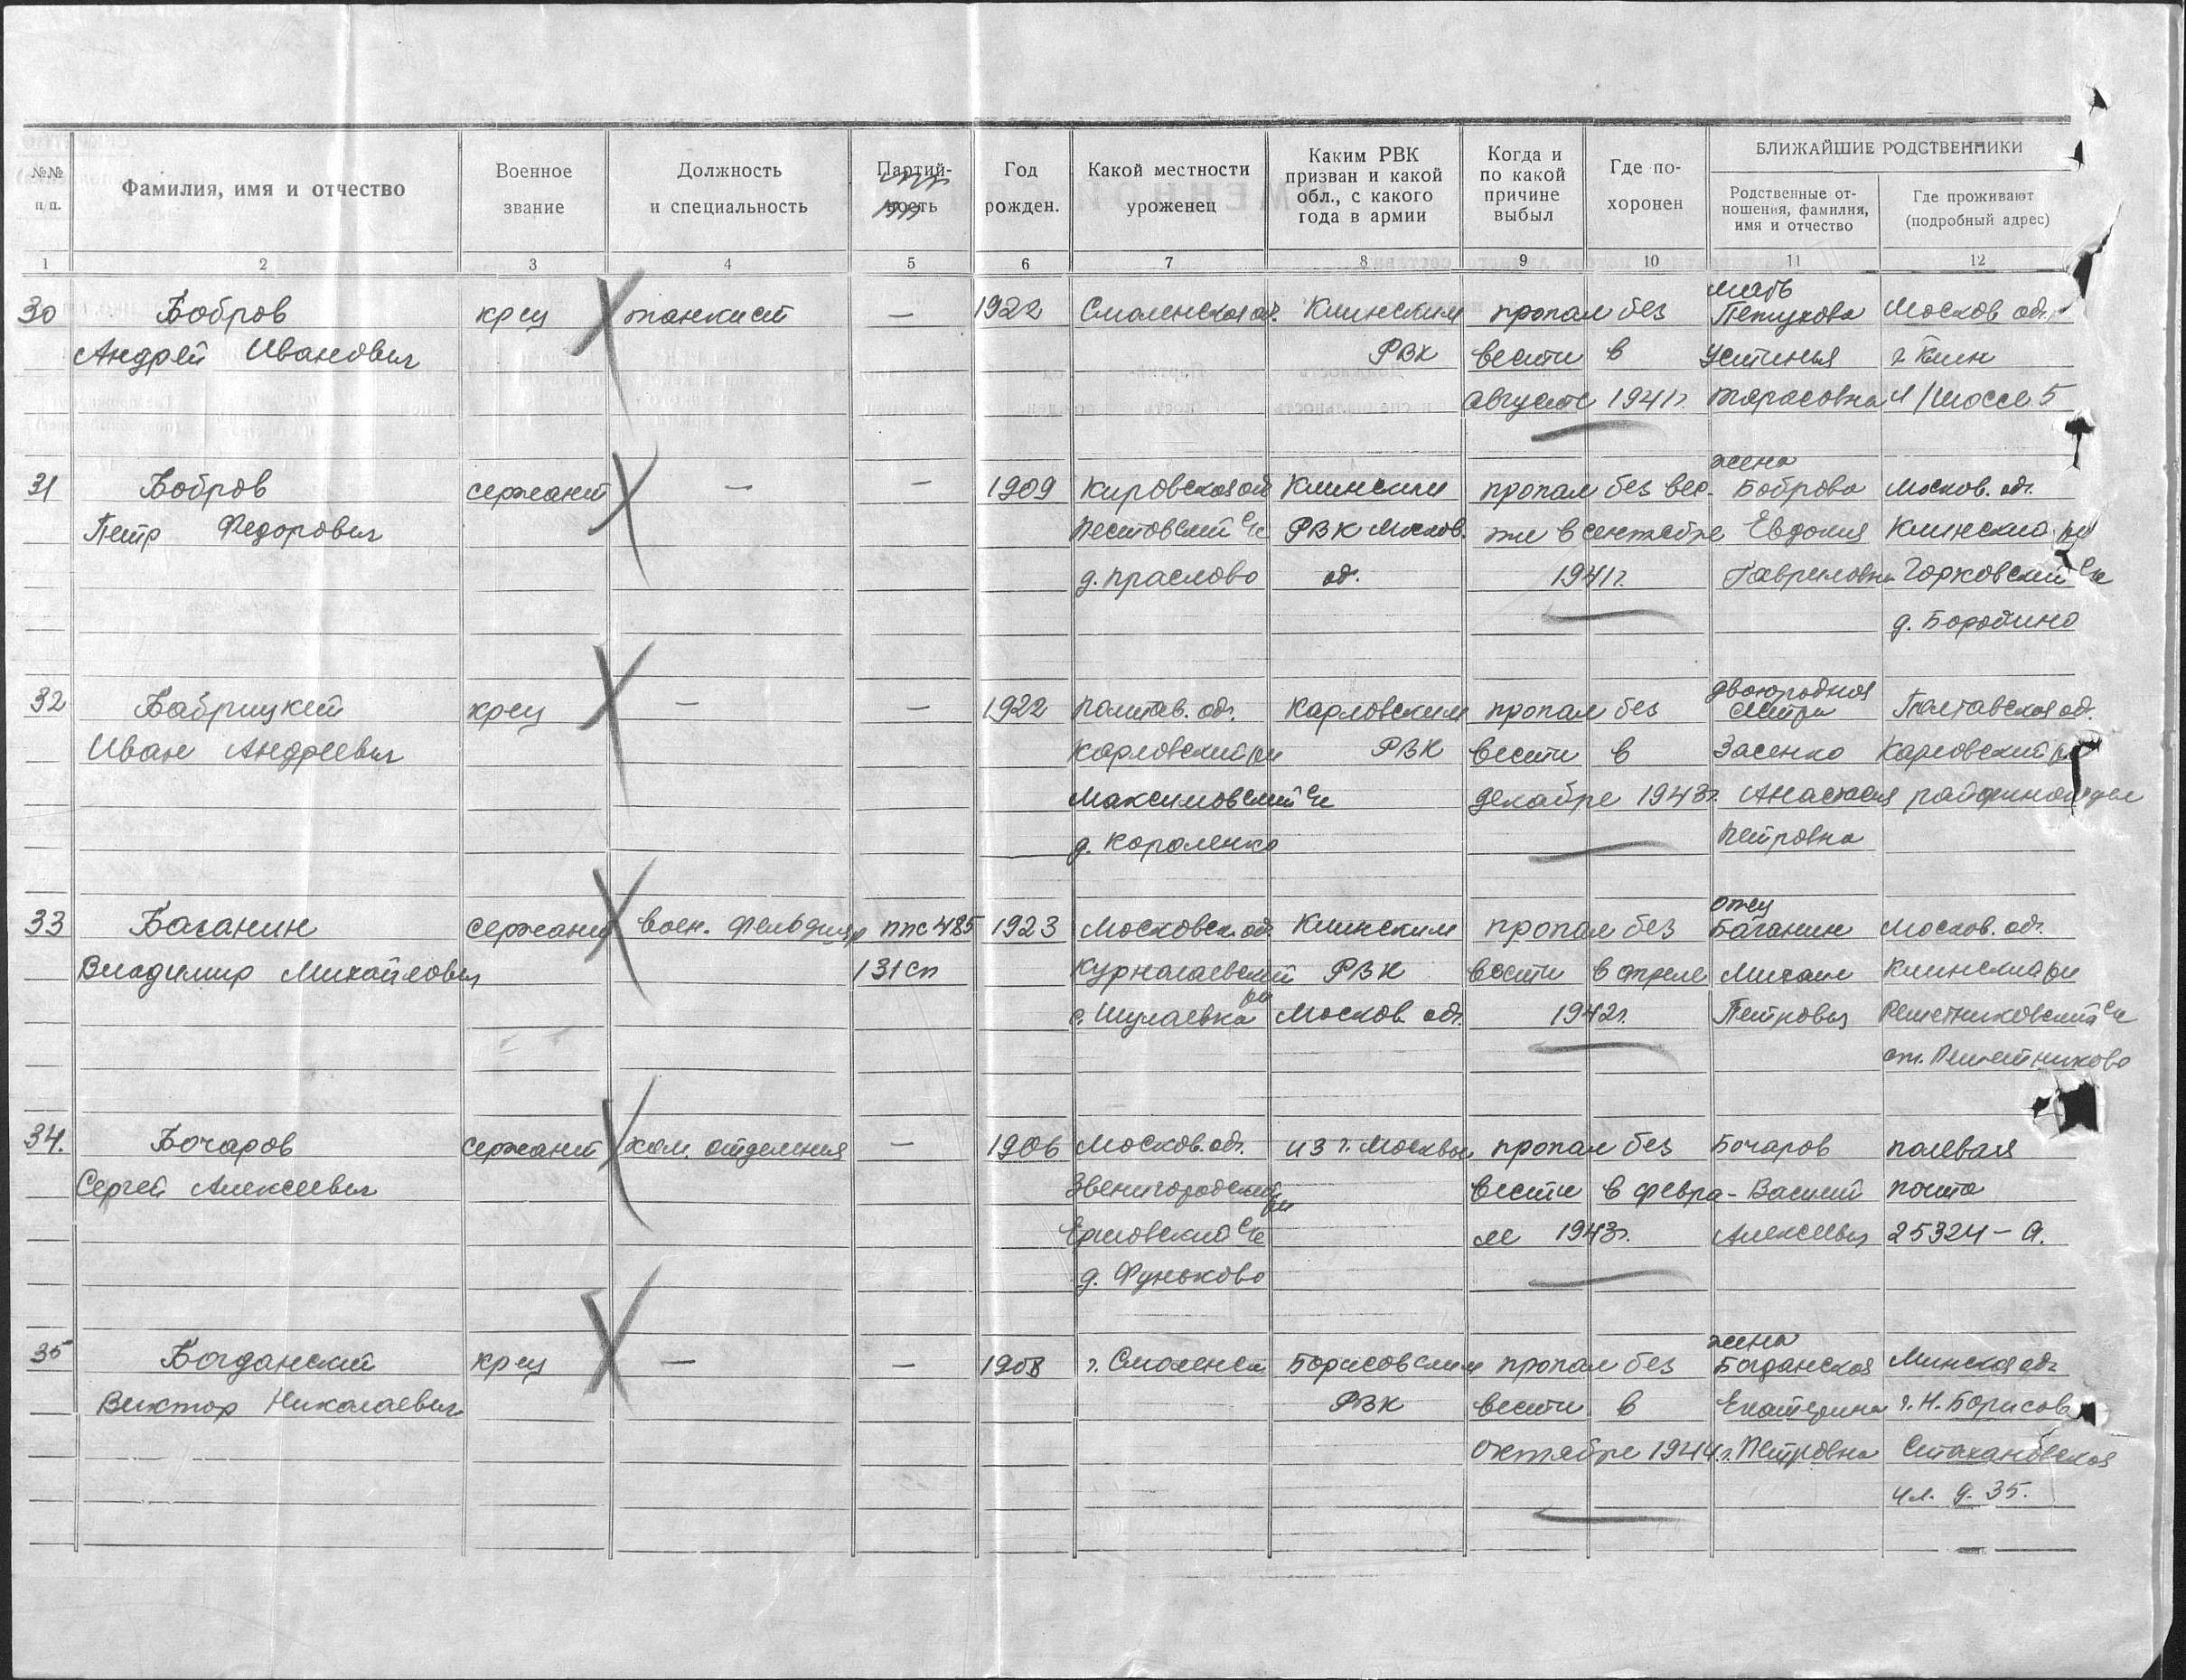 №№ п/п.
Фамилия, имя и отчество
Военное звание
Должность и специальность
Партий-ность
ппс
Год рожден.
Какой местности уроженец
Каким РВК призван и какой обл., с какого года в армии
Когда и по какой причине выбыл
Где по-хоронен
БЛИЖАЙШИЕ РОДСТВЕННИКИ
Родственные от-ношения, фамилия, имя и отчество
Где проживают (подробный адрес)
1 2 3 4 5 6 7 8 9 10 11 12
мать
30 Бобров кр-ец танкист — 1922 Смоленская об. Клинским пропал без Петухова Москов об.
Андрей Иванович РВК вести в Устинья г. Клин
августе 1941г. Тарасовна Л/Шоссе 5
жена
31 Бобров сержант — — 1909 Кировская об Клинским пропал без вес- Боброва Москов. об.
Петр Федорович Пестовский с/с РВК Москов. ти в сентябре Евдокия Клинский рн
д. Праслово об. 1941г. Гавриловна Горковский с/с
д. Бородино
двоюродная
32 Бабрицкий кр-ец — — 1922 Полтав. об. Карловским пропал без сестра Полтавская об.
Иван Андреевич Карловский рн РВК вести в Засенко Карловский рн
Максимовский с/с декабре 1943г. Анастасия райфинотдел
д. Короленко Петровна
отец
33 Баганин сержант воен. фельдшер ппс 485 1923 Московск. об. Клинским пропал без Баганин Москов. об.
Владимир Михайлович 131 сп РВК вести в апреле Михаил Клинский рн
рн
с. Шулаевка Москов. об. 1942г. Петрович Решетниковский с/с
ст. Решетниково
34. Бочаров сержант ком. отделения — 1906 Москов. об. из г. Москвы пропал без Бочаров полевая
Сергей Алексеевич Звенигородский рн вести в февра- Василий почта
Ершовский с/с ле 1943г. Алексеевич 25324-А.
д. Фуньково
жена
35 Богданский кр-ец — — 1908 г. Смоленск Борисовским пропал без Богданская Минская об.
Виктор Николаевич РВК вести в Екатерина г. Н. Борисов
октябре 1944г. Петровна Стахановская
ул. д. 35.